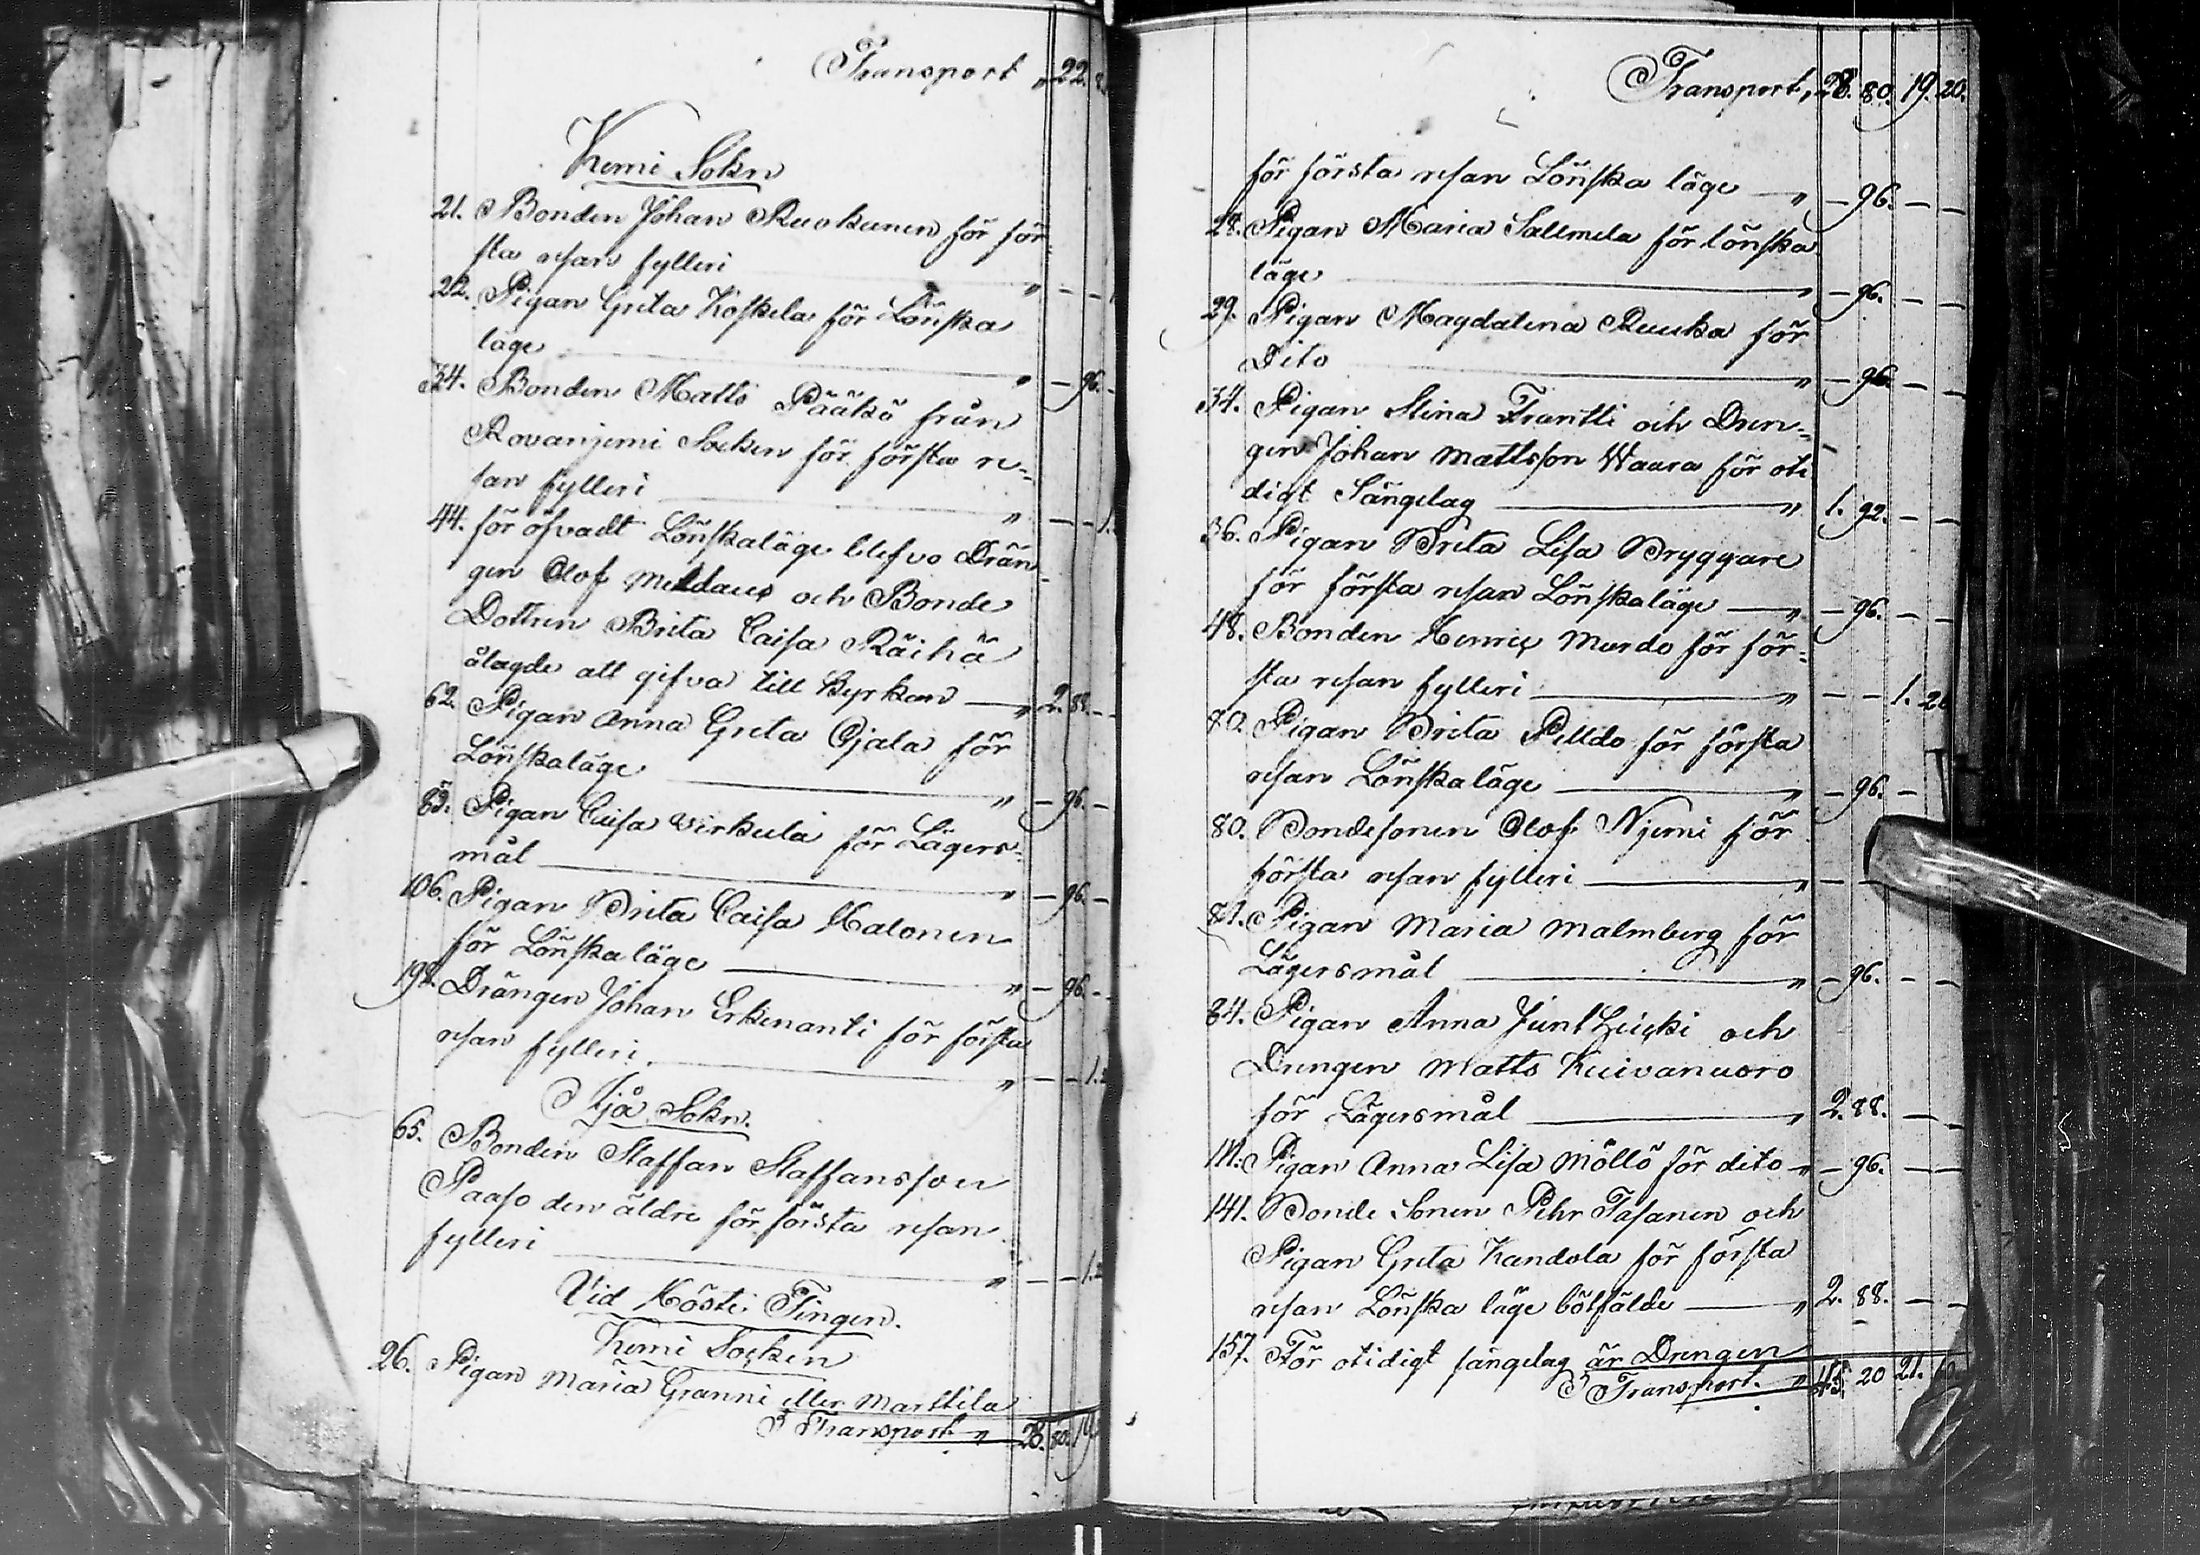 Transport " 22.
Kemi Sokn
21. Bonden Johan Ruokunen för för-
sta resan fylleri " — —
22. Pigan Greta Koskela för Lönska
läge " — 96. —
34. Bonden Matts Pääkö från
Rovanjemi Socken för första re-
san fylleri " — — 1.
44. för öfvadt Lönskaläge blefvo Drän-
gen Olof och Bonde
Dottren Brita Caisa Räihä
ålagde att gifva till Kyrkan — " 2. 88. —
62. Pigan Anna Greta Ojala för
Lönskaläge " — 96. —
83. Pigan Caisa Virkula för Lägers-
mål " — 96. —
106. Pigan Brita Caisa Halonen
för Lönskaläge " — 96. —
198. Drängen Johan Erkinanti för första
resan fylleri. " — — 1.
Ijå Sokn.
65. Bonden Staffan Staffansson
Paaso den äldre för första resan
fylleri " — — 1.
Vid Höste Tingen.
Kemi Socken
26. Pigan Maria Granni eller Marttila
Transport " 28. 80. 19.
Transport, 28. 80. 19. 20.
för första resan Lönska läge — " — 96. — —
28. Pigan Maria Sallmela för lönska
läge " — 96. — —
29. Pigan Magdalena Ruuka för
Dito " — 96. — —
34. Pigan Stina Frantti och Dren-
gen Johan Mattsson Waara för oti
digt Sängelag " 1. 92. — —
36. Pigan Brita Lisa Bryggare
för första resan Lönskaläge — " — 96. — —
48. Bonden Henric Murdo för för-
sta resan fylleri " — — 1. 20
70. Pigan Brita Pelldo för första
resan Lönskaläge " — 96. —
80. Bondesonen Olof Njemi för
första resan fylleri " —
81. Pigan Maria Malmberg för
Lägersmål " — 96. — —
84. Pigan Anna och
Drengen Matts Kuivanuoro
för Lägersmål " 2. 88. — —
111. Pigan Anna Lisa Möllö för dito " — 96. — —
141. Bonde Sonen Pehr Tasanen och
Pigan Greta Kandola för första
resan Lönska läge bötfälde — " 2. 88. — —
157. För otidigt sängelag är Drengen
Transport. " 45. 20 21. 60